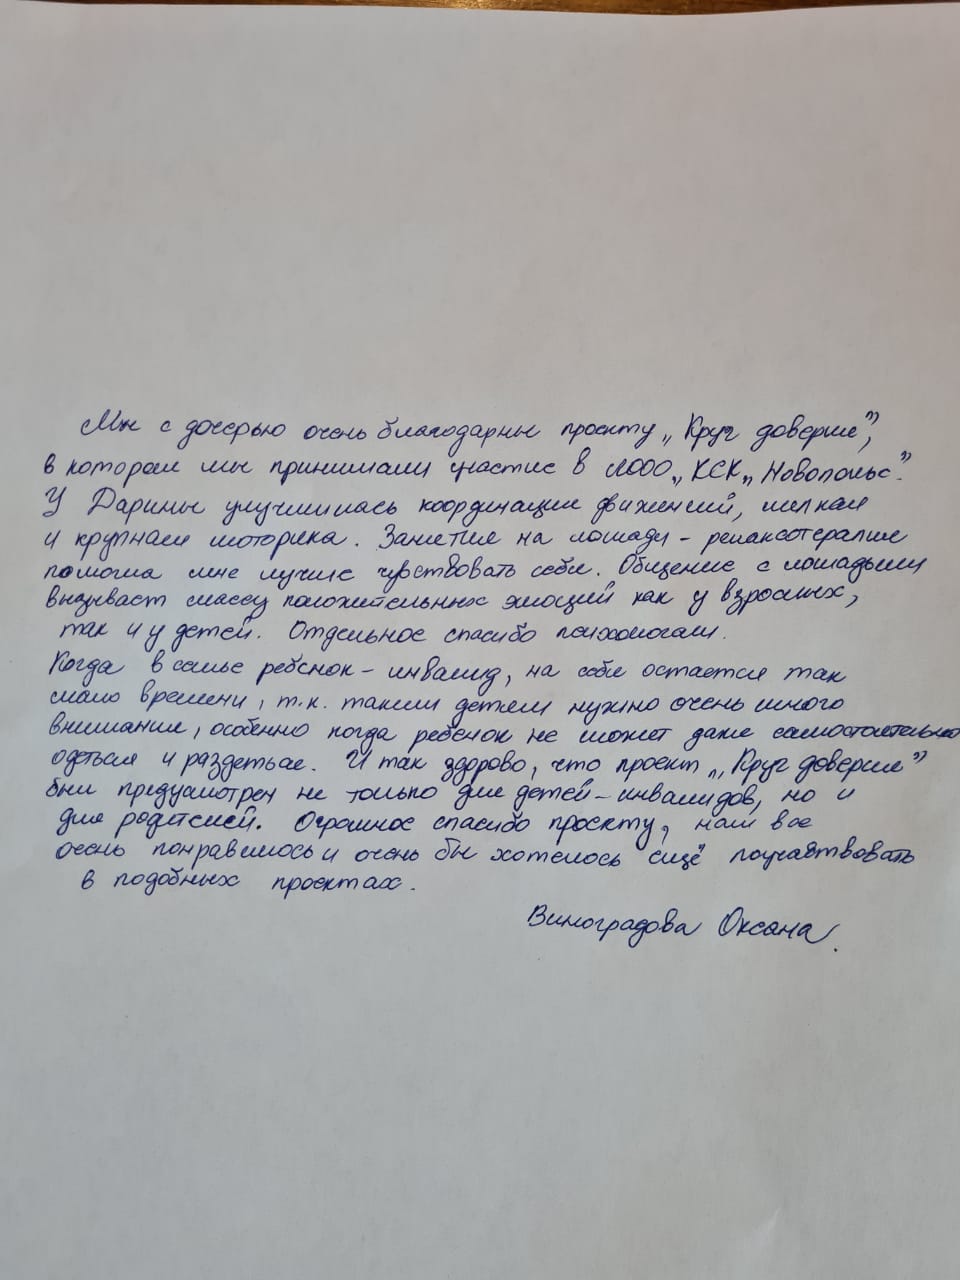 Мы с дочерью очень благодарны проекту „Круг доверия",
в котором мы принимали участие в ЛООО „КСК „Новополье".
У Дарины улучшилась координация движений, мелкая
и крупная моторика. Занятие на лошади - релаксотерапия
помогла мне лучше чувствовать себя. Общение с лошадьми
вызывает массу положительных эмоций как у взрослых,
так и у детей. Отдельное спасибо психологам.
Когда в семье ребёнок - инвалид, на себя остается так
мало времени, т.к. таким детям нужно очень много
внимания, особенно когда ребёнок не может даже самостоятельно
одеться и раздеться. И так здорово, что проект „Круг доверия"
был предусмотрен не только для детей-инвалидов, но и
для родителей. Огромное спасибо проекту, нам все
очень понравилось и очень бы хотелось ещё поучаствовать
в подобных проектах.
Виноградова Оксана.